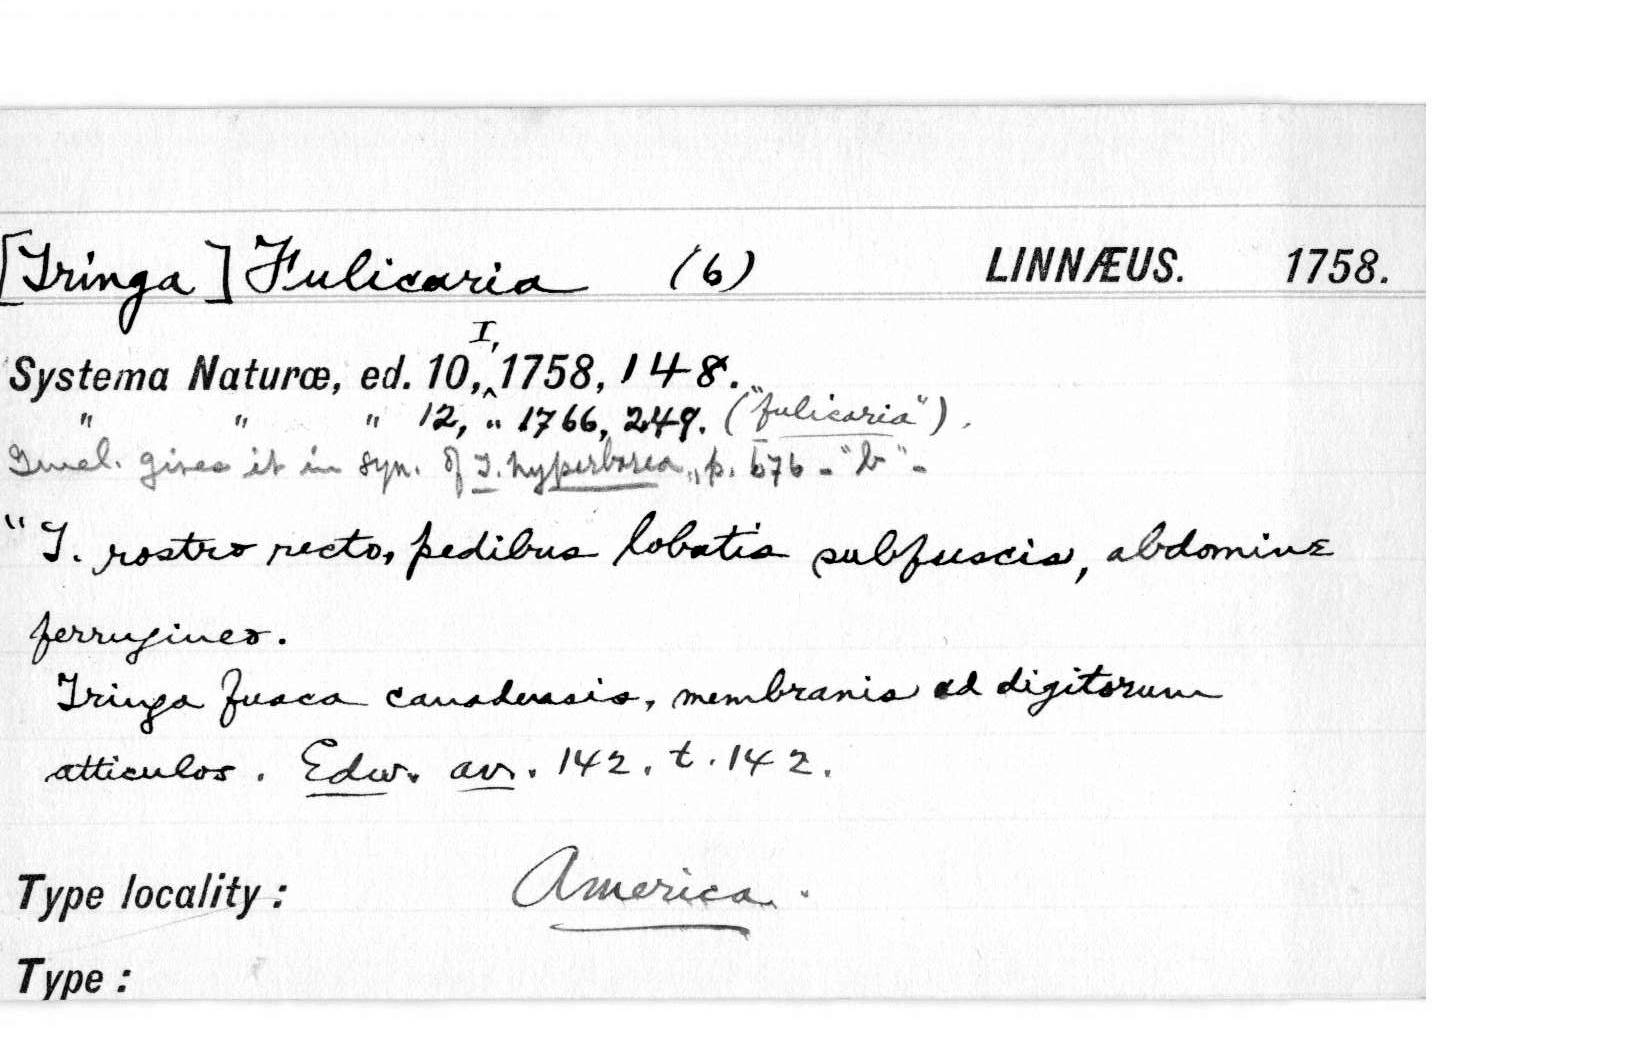 [Tringa] Fulicaria (6) LINNÆUS. 1758.
Systema Naturæ, ed. 10, I, 1758, 148.
" " " 12, " 1766, 249. ("fulicaria").
Gmel. gives it in syn. of T. hyperborea, p. 676 - "b" -
"T. rostro recto, pedibus lobatis subfuscis, abdomine
ferrugineo.
Tringa fusca canadensis, membranis ad digitorum
atticulos. Edw. av. 142. t. 142.
Type locality: America.
Type: